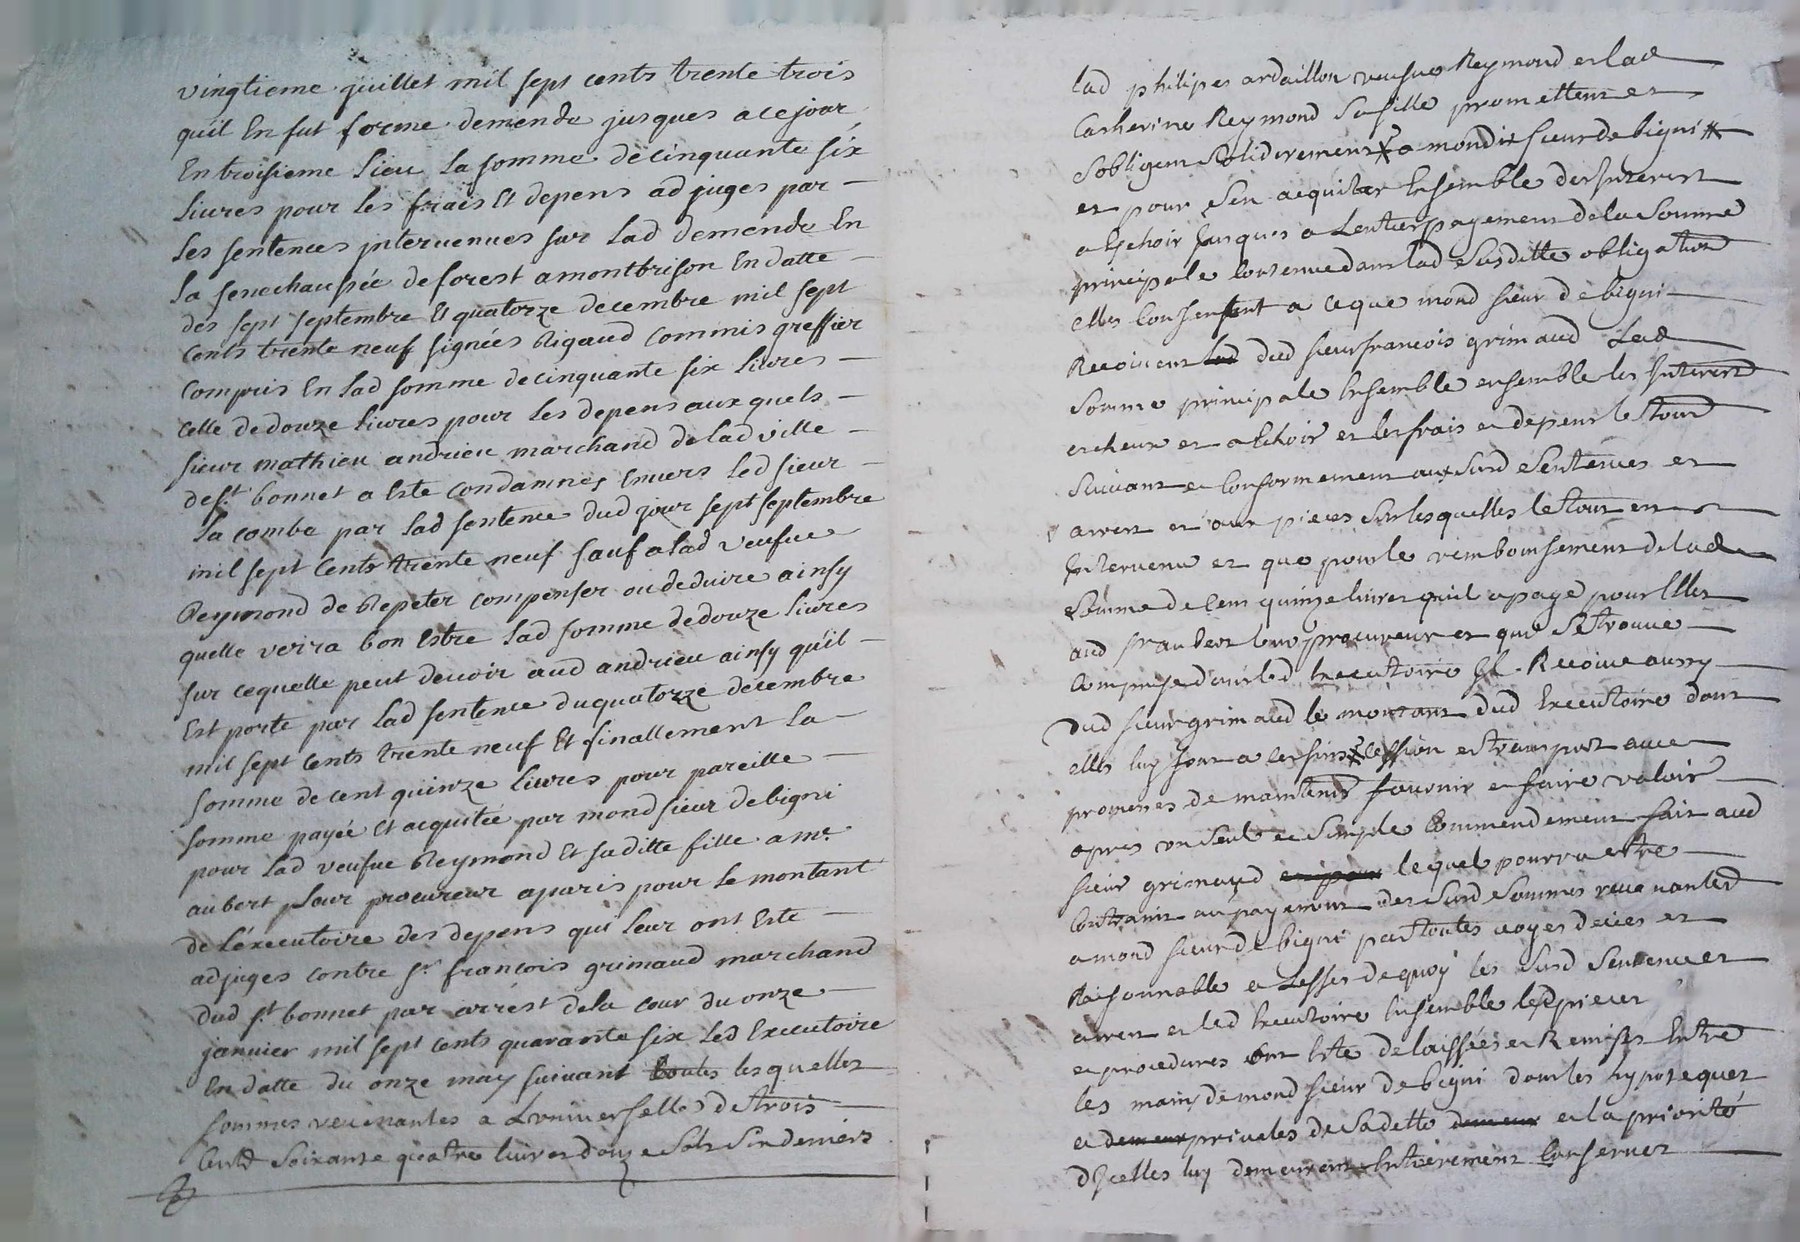 vingtieme juillet mil sept cents trente trois
quil En fut forme demende jusques a ce jour
En troisieme Lieu La somme de cinquante six
Livres pour les frais Et depens adjuges par
Les sentences intervenues sur Lad demende En
La senechaussée de forest a montbrison En datte
des sept septembre Et quatorze decembre mil sept
cents trente neuf signées Rigaud commis greffier
compris En Lad somme de cinquante six Livres
celle de douze Livres pour Les depens aux quels
sieur mathieu andrieu marchand de Lad ville
de st bonnet a Este condamnes Envers Led sieur
La combe par Lad sentence dud jour sept septembre
mil sept cents trente neuf sauf a Lad veufue
Reymond de Repeter compenser ou deduire ainsy
quelle verra bon Estre Lad somme de douze Livres
sur cequelle peut devoir aud andrieu ainsy quil
Est porte par Lad sentence du quatorze decembre
mil sept cents trente neuf Et finallement La
somme de cent quinze Livres pour pareille
somme payée Et acquitée par mond sieur de bigni
pour Lad veufue Reymond Et saditte fille a me
aubert Leur procureur a paris pour Le montant
de L'éxecutoire des depens qui Leur ont Este
adjuges contre sr francois grimaud marchand
dud st bonnet par arrest de la cour du onze
janvier mil sept cents quarante six Led Executoire
En datte du onze may suivant toutes les quelles
sommes revenantes a Luniverselle de trois
cents soixante quatre livres douze sols six deniers
lad philipes ardaillon veufue Reymond et lad
Catherine Reymond sa fille promettent et
sobligent solidairement a mondit sieur de bigni
et pour sen acquiter Ensemble des Interest
a Echoir jusques a Lentier payement de la somme
principale contenue dans lad susditte obligation
elles consentent a ce que mond sieur de bigni
Recoivent lad dud sieur francois grimaud Lad
somme principale Ensemble ensemble les Interest
echeus et a Echoir et les frais et depens le tout
suivant et conformement aux susd sentences et
arrest et aux pieces sur lesquelles le tout est
Intervenu et que pour le remboursement de lad
somme de cent quinze livres quil a payé pour Elles
aud sr aubert leur procureur et qui se trouve
comprise dans led Executoire Il Recoive aussy
dud sieur grimaud le montant dud Executoire dont
elles luy font a ces fins cession et transport avec
promesses de maintenir fournir et faire valoir
apres un seul et simple Commendement fait aud
sieur grimaud lequel pourra estre
contraint au payement des susd sommes revenantes
a mond sieur de bigni par toutes voyes deües et
Raisonnable a Leffet de quoy les susd sentences
arrest et led Executoire Ensemble lesd pieces
et procedures ont Este delaissées et Remises Entre
les mains de mond sieur de bigni dont les hypoteques
et demeur privileges de sa dette demeur et la priorité
d'Icelles luy demeurent Entierement Conserver